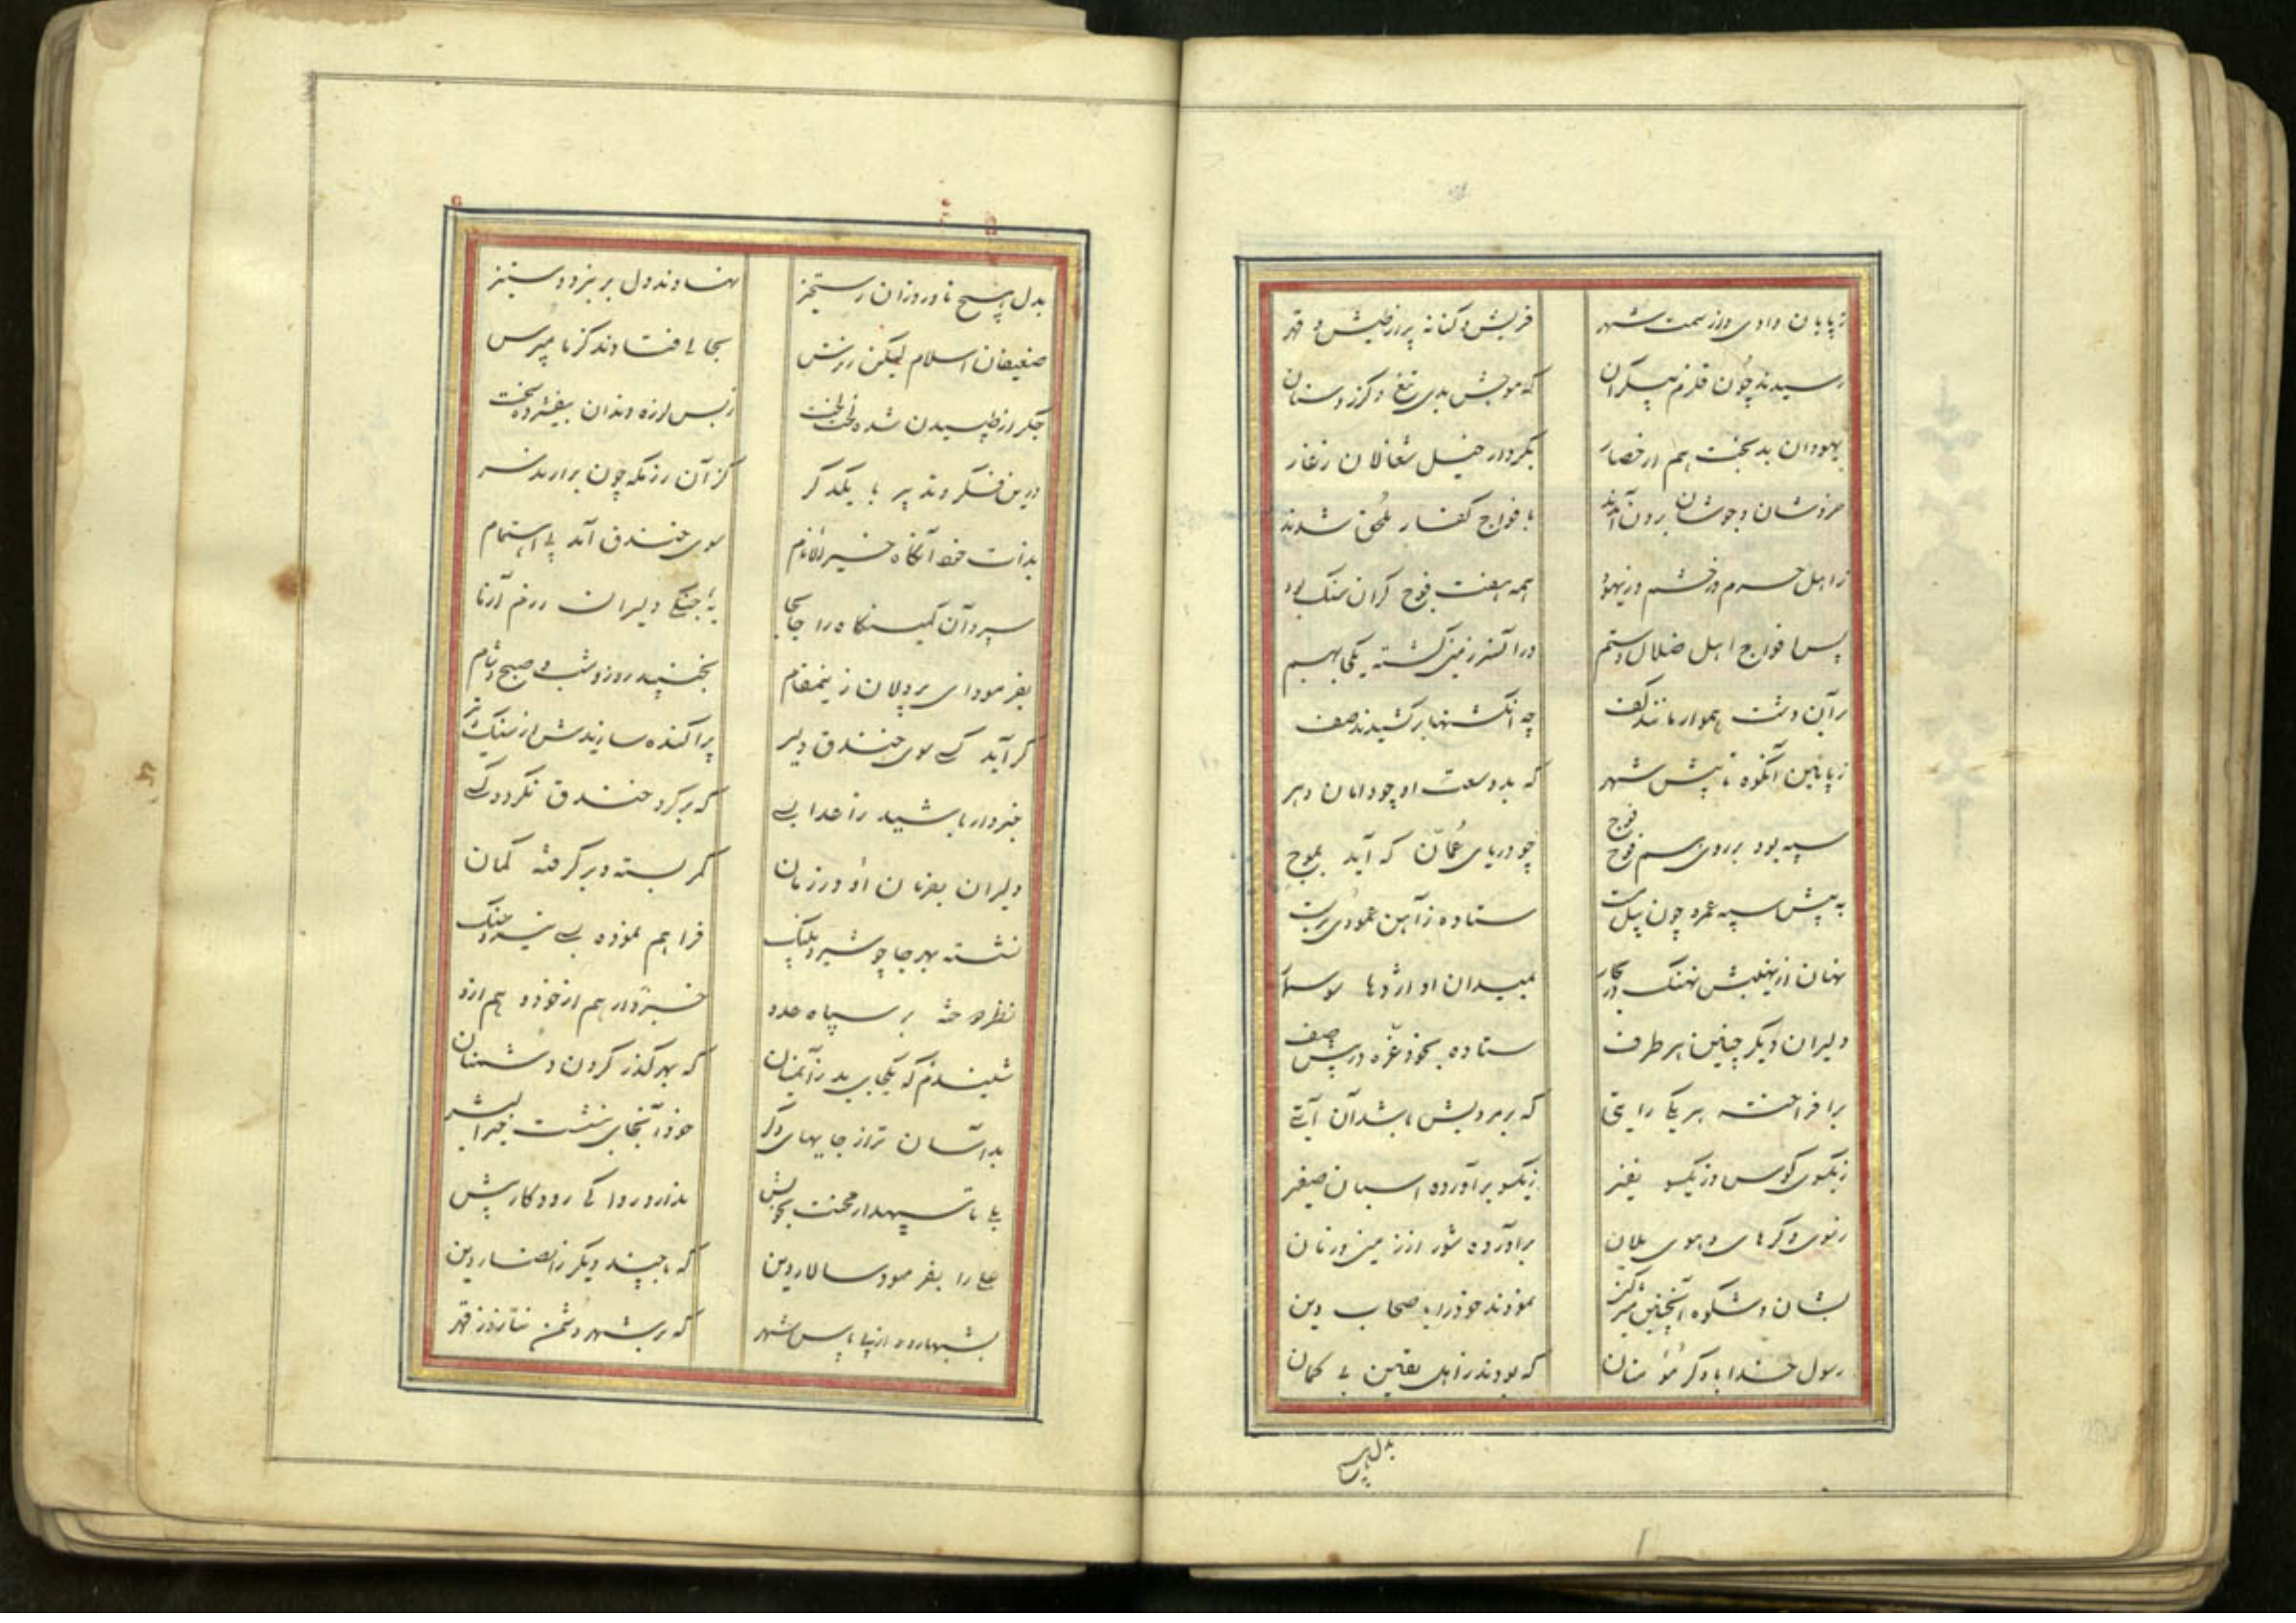 ز پایان وادی و از سمت شهر قریش و کنانه پر از طیش و قهر
رسیدند چون قلزم بیکران که موجش بدی تیغ و گرز و سنان
یهودان بدبخت هم از حصار بکردار خیل شغالان ز غار
خروشان و جوشان برون آمدند بافواج کفار ملحق شدند
ز اهل حرم وز یهود همه هفت فوج گران سنگ بود
پس افواج اهل ضلال و ستم در آن سرزمین گشته یکجا بهم
در آن دشت هموار مانند کف چه انگشتها برکشیدند صف
ز پایین آنکوه تا پیش شهر که بد وسعت او چو دامان دهر
سپه بود بر روی هم فوج فوج چو دریای عمان که آید بموج
به پیش سپه عمرو چون پیل مست ستاده ز آهن عمودی بدست
نهان از نهیبش نهنگ در بحار بمیدان او اژدها سوسمار
دلیران دیگر چنین هر طرف ستاده بخود غره در پیش صف
برافراخته هر یکی رایتی که بر مردیش باشد آن آیتی
ز یکسوی کوس و ز یکسو نفیر ز یکسو برآورده اسبان صفیر
ز های و هوی یلان برآورده شور از زمین و زمان
بشان و شکوه اینچنین نمودند خود را باصحاب دین
رسول خدا با دگر مؤمنان که بودند ز اهل یقین بی گمان
بدل هیچ
بدل هیچ نادرده زان رستخیز نهادند دل بر نبرد و ستیز
ضعیفان اسلام لیکن ز ترس بحالی فتادند کز ما مپرس
جگر از طپیدن شده لخت لخت ز بس لرزه دندان بیفشرده سخت
درین فکر بودند با یکدگر کز آن رزمگه چون برآرند سر
بذات خود آنگاه خیر الانام سوی خندق آمد پی اهتمام
سپرد آن کمینگاه را جابجا به جنگی دلیران رزم آزما
بفرمود ای پردلان زین مقام نجنبید روز و شب و صبح و شام
گر آید کسی سوی خندق دلیر پراکنده سازیدش از سنگ و تیر
خبردار باشید ز اعدا بسی که بر گرد خندق نگردد کسی
دلیران بفرمان او در زمان کمر بسته و برگرفته کمان
نشسته بهر جا چو شیر و پلنگ فراهم نموده بسی تیر و سنگ
نظر دوخته بر سپاه عدو خبردار هم از خود و هم ازو
شنیدم که یکجای بد ز آنمیان که بهر گذر کردن دشمنان
بد آسان تر از جایهای دگر خود آنجای بنشست خیر البشر
علی را بفرمود سالار دین که با چند دیگر ز انصار دین
بشبها رود از پی پاس شهر که بر شهر دشمن نتازد ز قهر